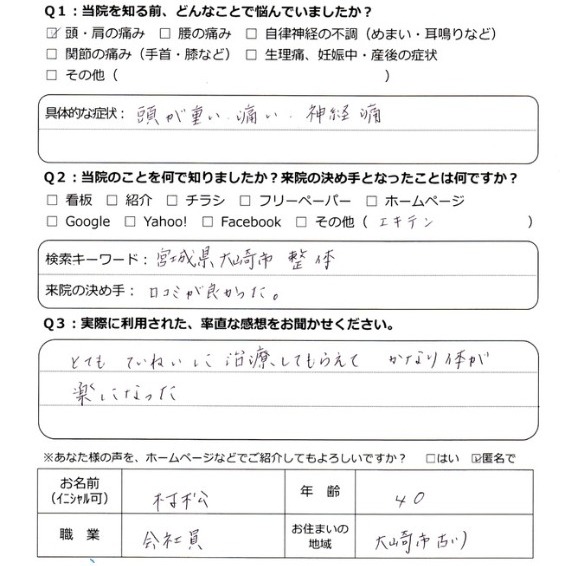 Q1：当院を知る前、どんなことで悩んでいましたか？
☑ 頭・肩の痛み □ 腰の痛み □ 自律神経の不調（めまい・耳鳴りなど）
□ 関節の痛み（手首・膝など） □ 生理痛、妊娠中・産後の症状
□ その他（ ）
具体的な症状： 頭が重い．痛い．神経痛
Q2：当院のことを何で知りましたか？来院の決め手となったことは何ですか？
□ 看板 □ 紹介 □ チラシ □ フリーペーパー □ ホームページ
□ Google □ Yahoo! □ Facebook □ その他（ エキテン ）
検索キーワード： 宮城県大崎市 整体
来院の決め手： 口コミが良かった。
Q3：実際に利用された、率直な感想をお聞かせください。
とても ていねいに 治療してもらえて かなり体が
楽になった
※あなた様の声を、ホームページなどでご紹介してもよろしいですか？ □はい ☑匿名で
お名前（イニシャル可） 村松 年 齢 40
職 業 会社員 お住まいの地域 大崎市古川